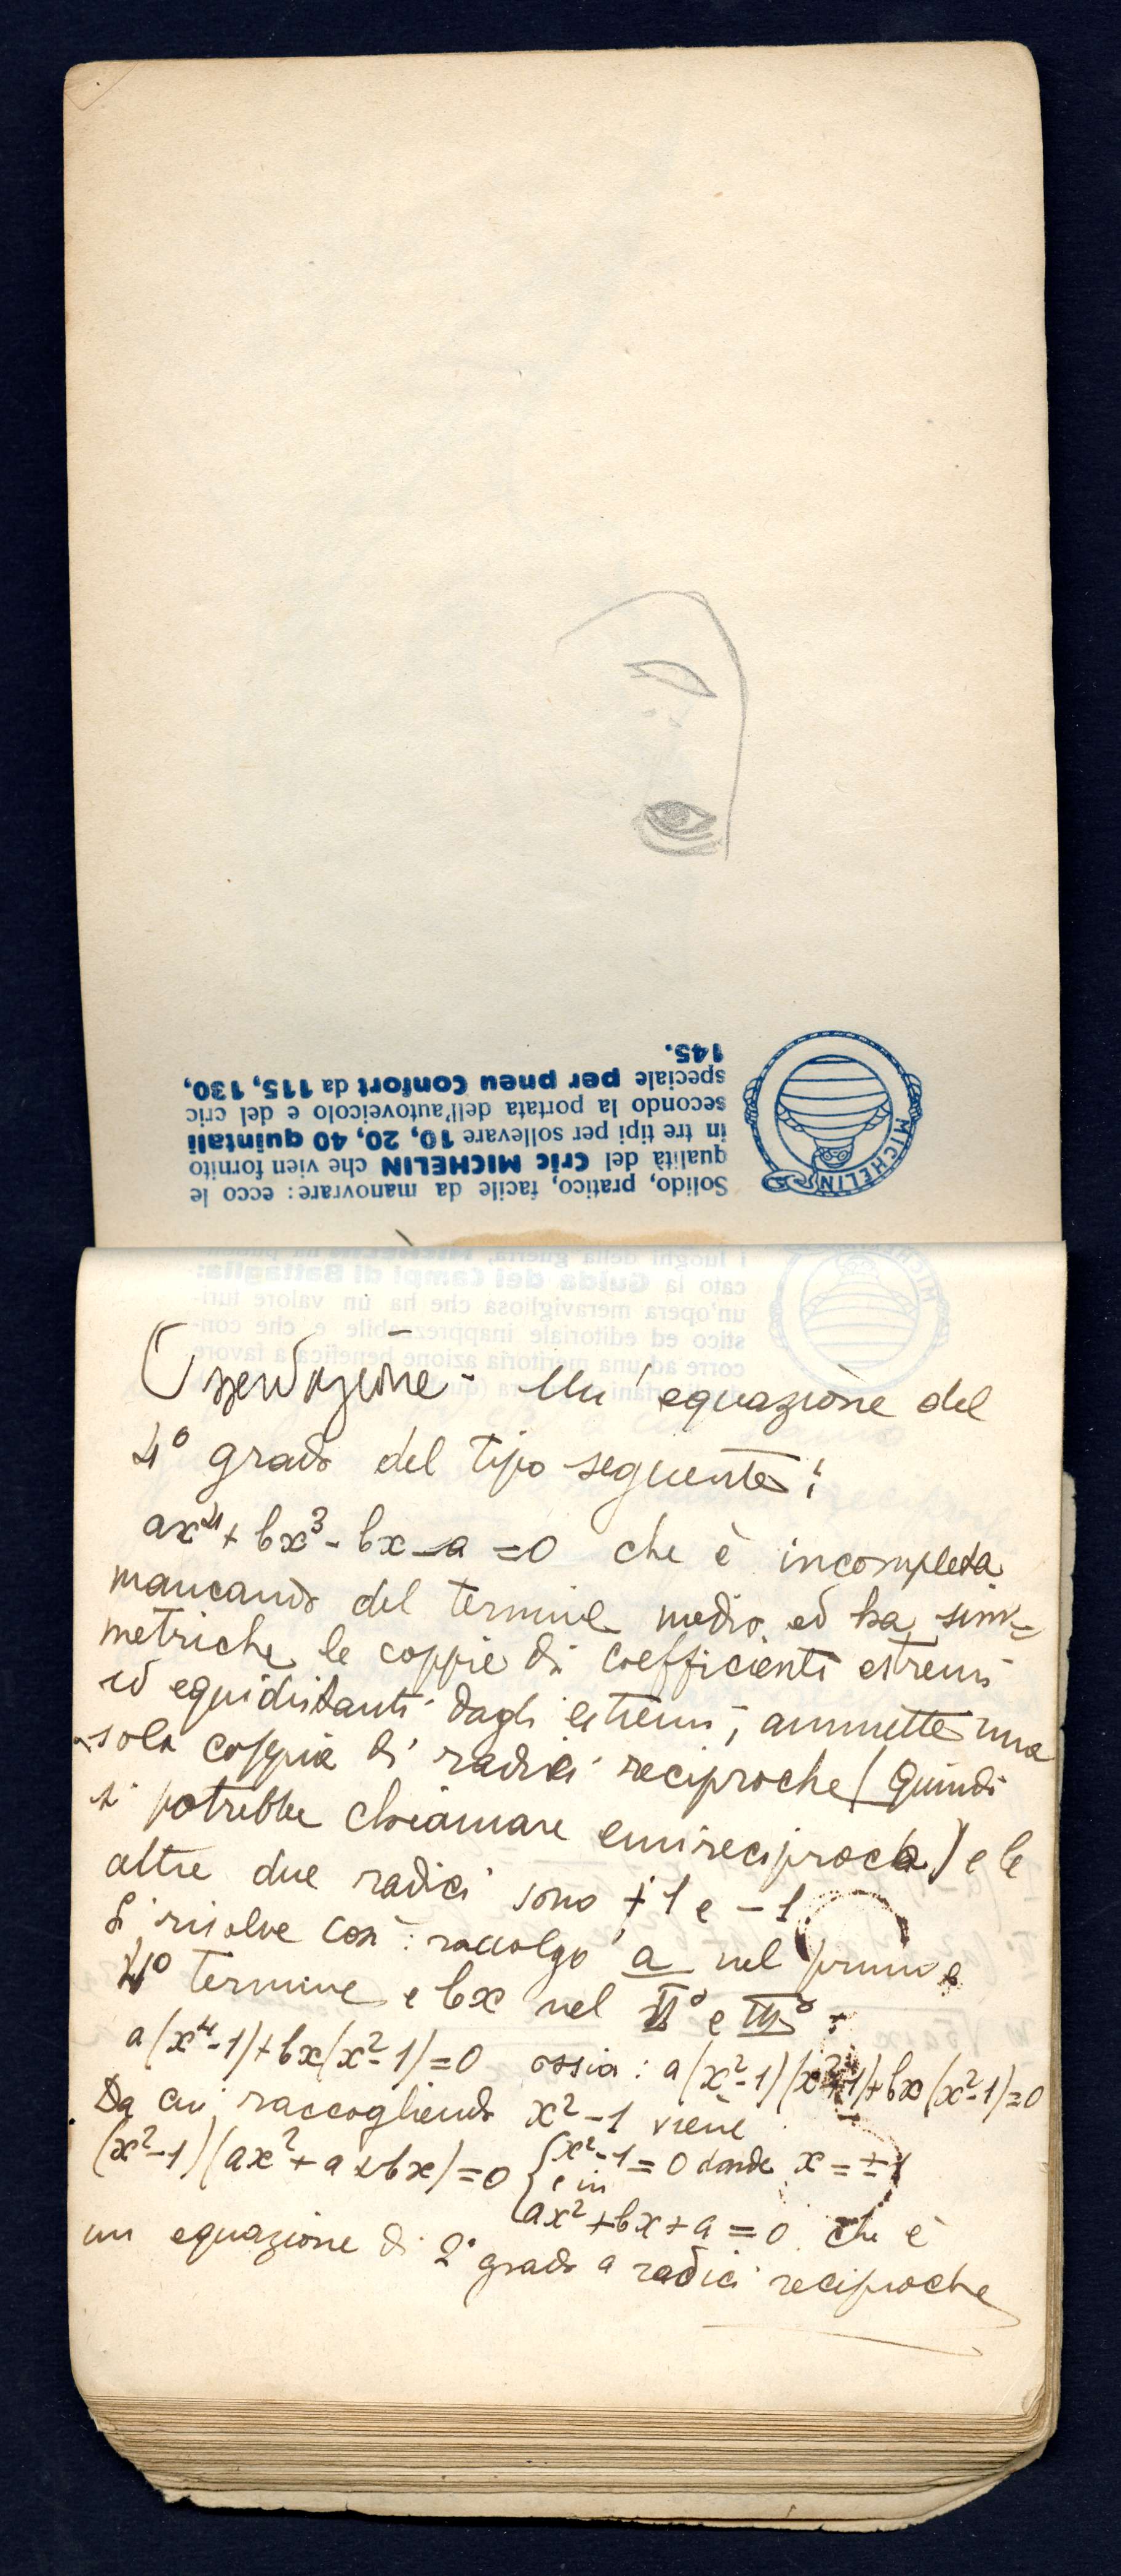 Solido, pratico, facile da manovrare: ecco le
qualità del Cric MICHELIN che vien fornito
in tre tipi per sollevare 10, 20, 40 quintali
secondo la portata dell'autoveicolo e del cric
speciale per pneu Confort da 115, 130,
145.
MICHELIN
i luoghi della guerra,
cato la Guida dei Campi di Battaglia:
un'opera meravigliosa che ha un valore turi-
stico ed editoriale inapprezzabile e che con-
corre ad una meritoria azione benefica a favore
Osservazione - Un'equazione del
4° grado del tipo seguente:
ax⁴ + bx³ - bx - a = 0 che è incompleta
mancando del termine medio ed ha sim=
metriche le coppie di coefficienti estremi
ed equidistanti dagli estremi, ammette una
sola coppia di radici reciproche (quindi
si potrebbe chiamare emireciproca) e le
altre due radici sono +1 e -1
Si risolve così: raccolgo a nel primo e
4° termine e bx nel II° e III°:
a(x⁴-1)+bx(x²-1)=0 ossia: a(x²-1)(x²+1)+bx(x²-1)=0
Da cui raccogliendo x²-1 viene
(x²-1)(ax²+a+bx)=0 { x²-1=0 donde x=±1
e in
ax²+bx+a=0 che è
un equazione di 2° grado a radici reciproche